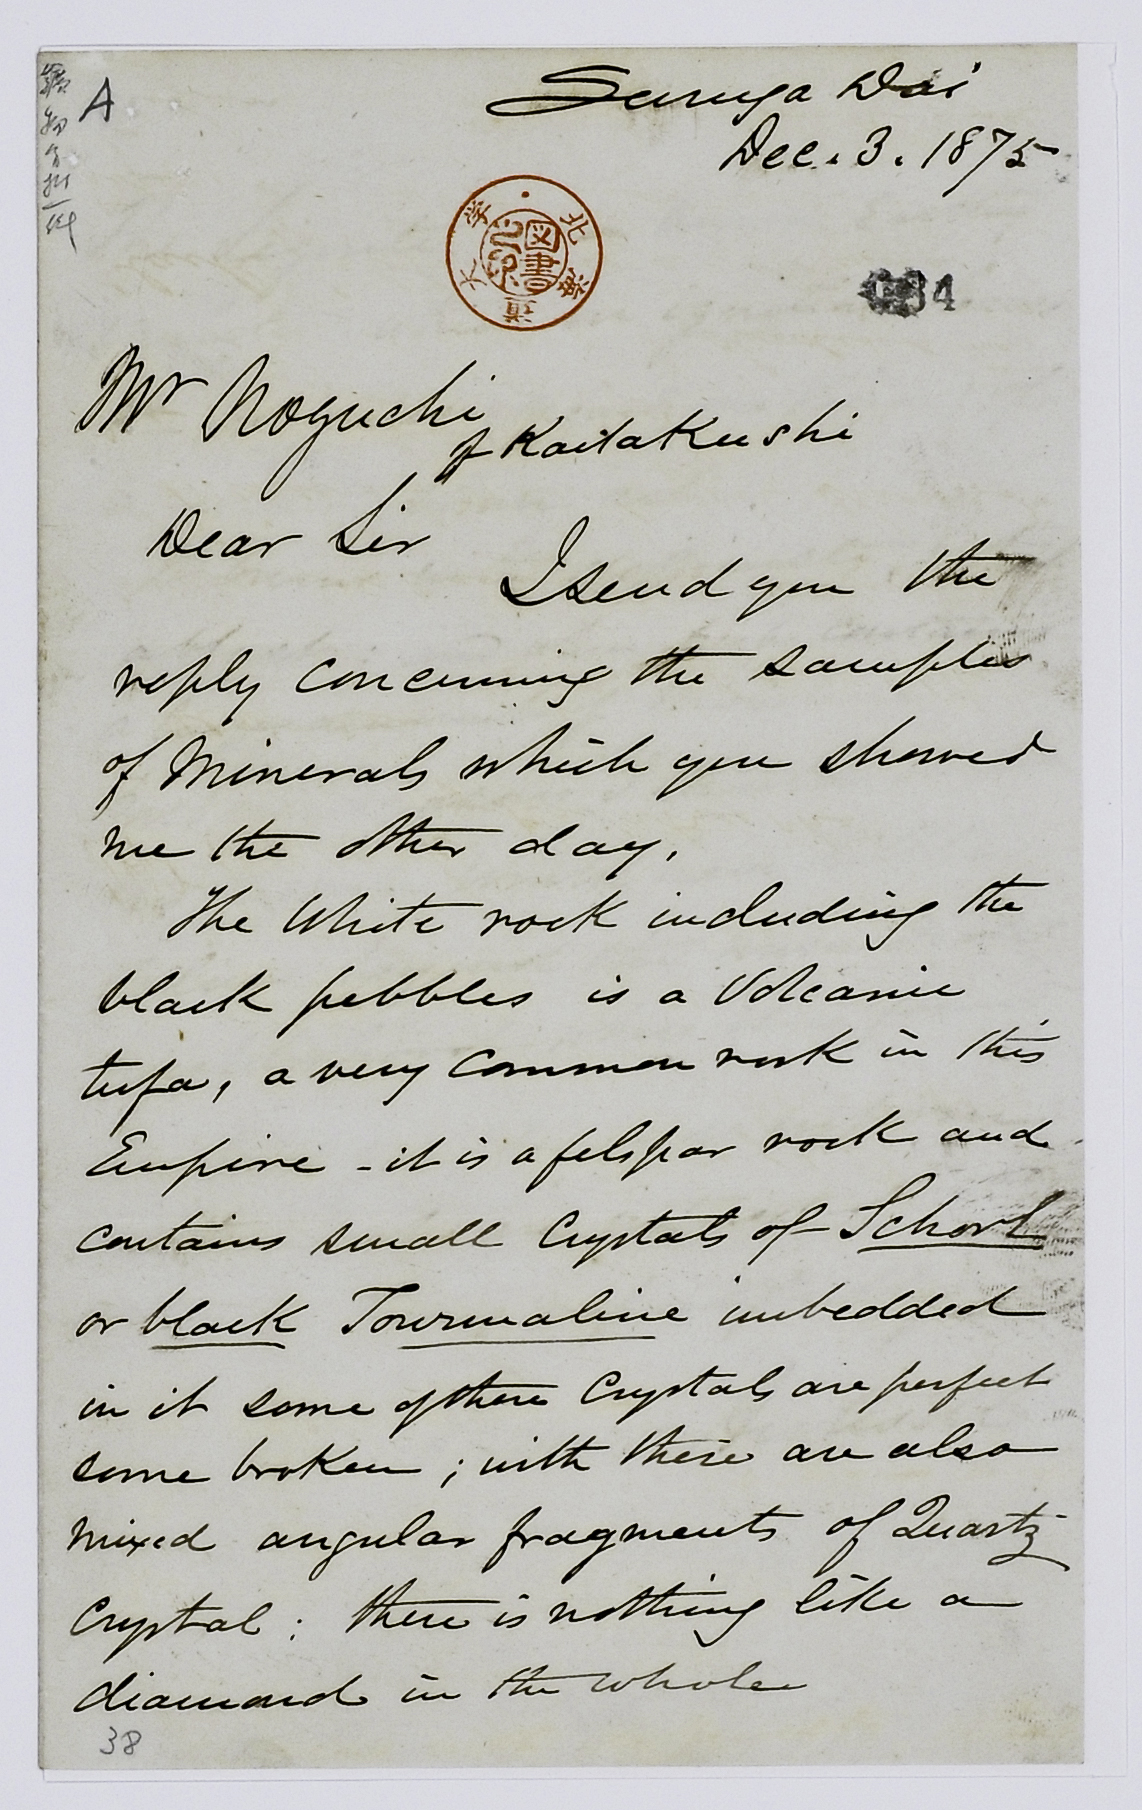 A
Suruga Dai
Dec. 3. 1875
北海道大学
図書
34
Mr Noguchi
of Kaitakushi
Dear Sir
I send you the
reply concerning the samples
of Minerals which you showed
me the other day.
The White rock including the
black pebbles is a Volcanic
tufa, a very common rock in this
Empire - it is a felspar rock and
contains small Crystals of Schorl
or black Tourmaline imbedded
in it some of these Crystals are perfect
some broken; with these are also
mixed angular fragments of Quartz
Crystal: there is nothing like a
diamond in the whole
38